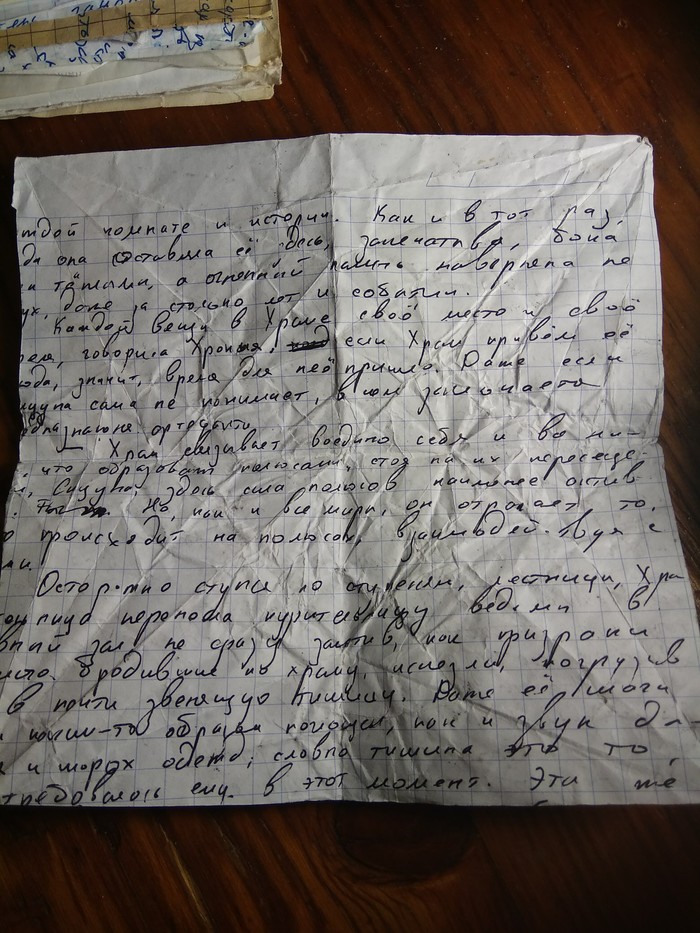 ждой комнате и истории. Как и в тот раз,
она оставила её здесь, запечатав, бока
тёмными, а огненный память наверняка не
ух, даже за столько лет и событий.
Каждой вещи в Храме своё место и своё
время, говорила Хроння, если Храм привёл её
сюда, значит, время для неё пришло. Даже если
сама не понимает, в чём заключается
Храм связывает воедино себя и все ми-
что образован полюсами, стоя на их пересече-
здесь сила полюсов наиболее актив
Но, как и все миры, он отражает то,
о происходит на полюсах, взаимодействуя с
ми.
Осторожно ступая по ступеням, лестницы, Хра
перенесла курительницу ведьмы в
вный зал, не сразу заметив, как призраки
бродившие по храму, исчезли, погрузив
в почти звенящую тишину. Даже её шаги
каким-то образом как и звук ды-
и шорох одежд, словно тишина это то,
требовалось ему в этот момент. Эти же